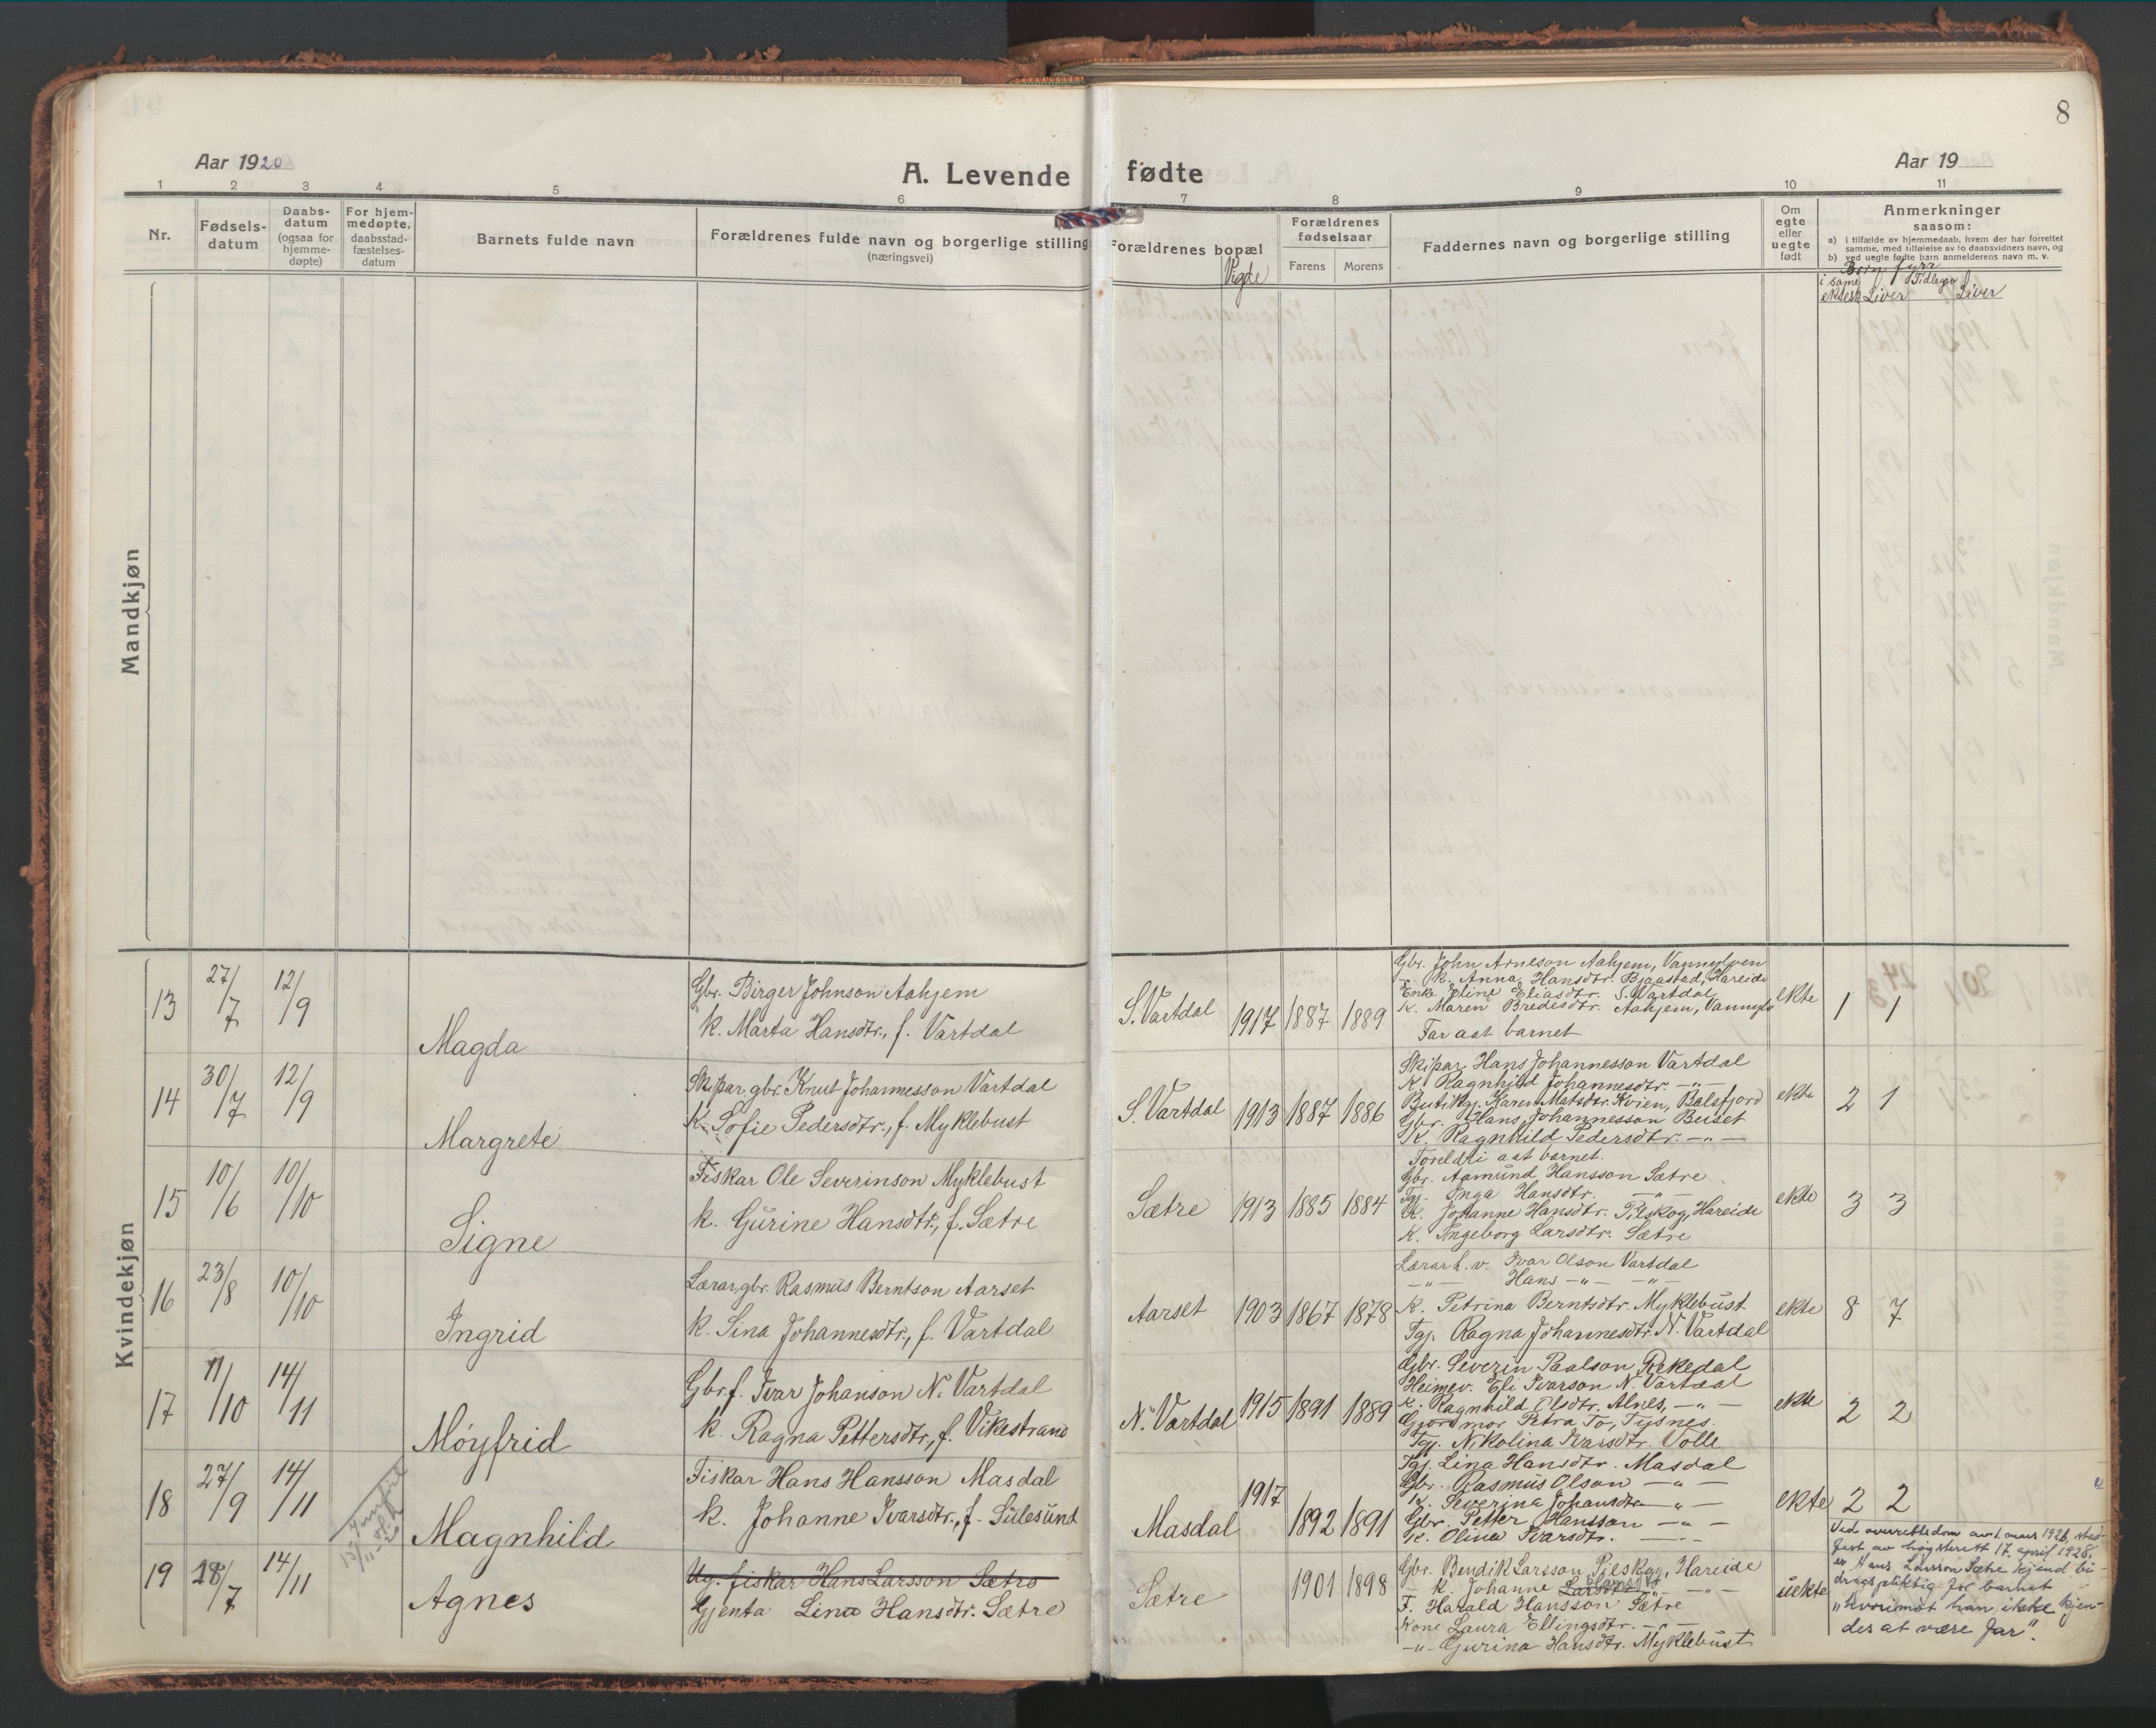 8
Aar 1920
A. Levende fødte
Aar 19
1 2 3 4 5 6 7 8 9 10 11
Nr.
Fødsels-
datum
Daabs-
datum
(ogsaa for
hjemme-
døpte)
For hjem-
medøpte,
daabsstad-
fæstelses-
datum
Barnets fulde navn
Forældrenes fulde navn og borgerlige stilling
(næringsvei)
Forældrenes bopæl
Vigde
Forældrenes
fødselsaar
Farens Morens
Faddernes navn og borgerlige stilling
Om
egte
eller
uegte
født
Anmerkninger
saasom:
a) i tilfælde av hjemmedaab, hvem der har forrettet
samme, med tilføielse av to daabsvidners navn, og
b) ved uegte fødte barn anmelderens navn m. v.
Born fyrr
i same Tidlegar
ektesk Liver Liver
Mandkjøn
Kvindekjøn
13 27/7 12/9
Magda
Gbr. Birger Johnson Aahjem
k. Marta Hansdtr., f. Vartdal
S. Vartdal 1917 1887 1889
Gbr. John Arneson Aahjem, Vannylven
k. Anna Hansdtr. Bjaastad, Hareide
Enke Eline Eliasdtr. S. Vartdal
K. Maren Bredesdtr. Aahjem, Vannylv
Far aat barnet
ekte 1 1
14 30/7 12/9
Margrete
Skipar, gbr. Knut Johannesson Vartdal
K. Sofie Pedersdtr., f. Myklebust
S. Vartdal 1913 1887 1886
Skipar Hans Johannesson Vartdal
K. Ragnhild Johannesdtr. —"—
Butikgj. Karen Matsdtr. Kvien, Balsfjord
Gbr. Hans Johannesson Buset
K. Ragnhild Pedersdtr. —"—
Foreldri aat barnet.
ekte 2 1
15 10/6 10/10
Signe
Fiskar Ole Severinson Myklebust
k. Gurine Hansdtr., f. Sætre
Sætre 1913 1885 1884
Gbr. Aamund Hansson Sætre
Tgj. Inga Hansdtr. —"—
K. Johanne Hansdtr. Pilskog, Hareide
K. Ingeborg Larsdtr. Sætre
ekte 3 3
16 23/8 10/10
Ingrid
Lærar, gbr. Rasmus Berntson Aarset
k. Sina Johannesdtr., f. Vartdal
Aarset 1903 1867 1878
Lærar h. v. Ivar Olson Vartdal
—"— Hans —"— —"—
K. Petrina Berntsdtr. Myklebust
Tgj. Ragna Johannesdtr. N. Vartdal
ekte 8 7
17 11/10 14/11
Møyfrid
Gbr. f. Ivar Johanson N. Vartdal
k. Ragna Pettersdtr., f. Vikestrand
N. Vartdal 1915 1891 1889
Gbr. Severin Paalson Rekedal
Heimev. Eli Ivarson N. Vartdal
K. Ragnhild Olsdtr. Alnes, —"—
Gjordmor Petra To, Tysnes.
Tgj. Nikolina Ivarsdtr. Volle
ekte 2 2
18 27/9 14/11
Magnhild
Fiskar Hans Hansson Masdal
k. Johanne Ivarsdtr., f. Sulesund
Masdal 1917 1892 1891
Tgj. Lina Hansdtr. Masdal
Gbr. Rasmus Olson —"—
K. Severina Johansdtr. —"—
Gbr. Petter Hansson —"—
K. Olina Ivarsdtr. —"—
ekte 2 2
19 18/7 14/11
Agnes
Ug. fiskar Hans Larsson Sætre
Gjenta Lina Hansdtr. Sætre
Sætre 1901 1898
Gbr. Bendik Larsson Pilskog, Hareide
k. Johanne Larsdtr. Hansdtr. —"—
F. Harald Hansson Sætre
Kone Laura Ellingsdtr. —"—
—"— Gurina Hansdtr. Myklebust
uekte
Ved overrettsdom av 1. mars 1926, stad-
fest av høgsterett 17. april 1928,
er Hans Larsson Sætre kjend bi-
dragspliktig for barnet
"hvorimot han ikke kjen-
des at være far".